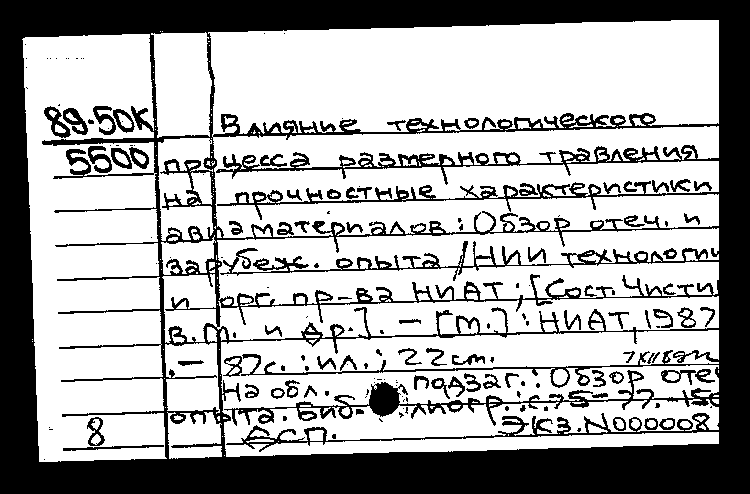 89-50К Влияние технологического
5500 процесса размерного травления
на прочностные характеристики
авиаматериалов : Обзор отеч. и
зарубеж. опыта / НИИ технологии
и орг. пр-ва НИАТ ; [Сост. Чисти
В.М. и др.]. – [М.] : НИАТ, 1987
. – 87с. : ил. ; 22 см.
На обл. подзаг. : Обзор отеч
опыта. Библиогр. : с.75-77. – 150
8 ДСП. Экз. N000008.